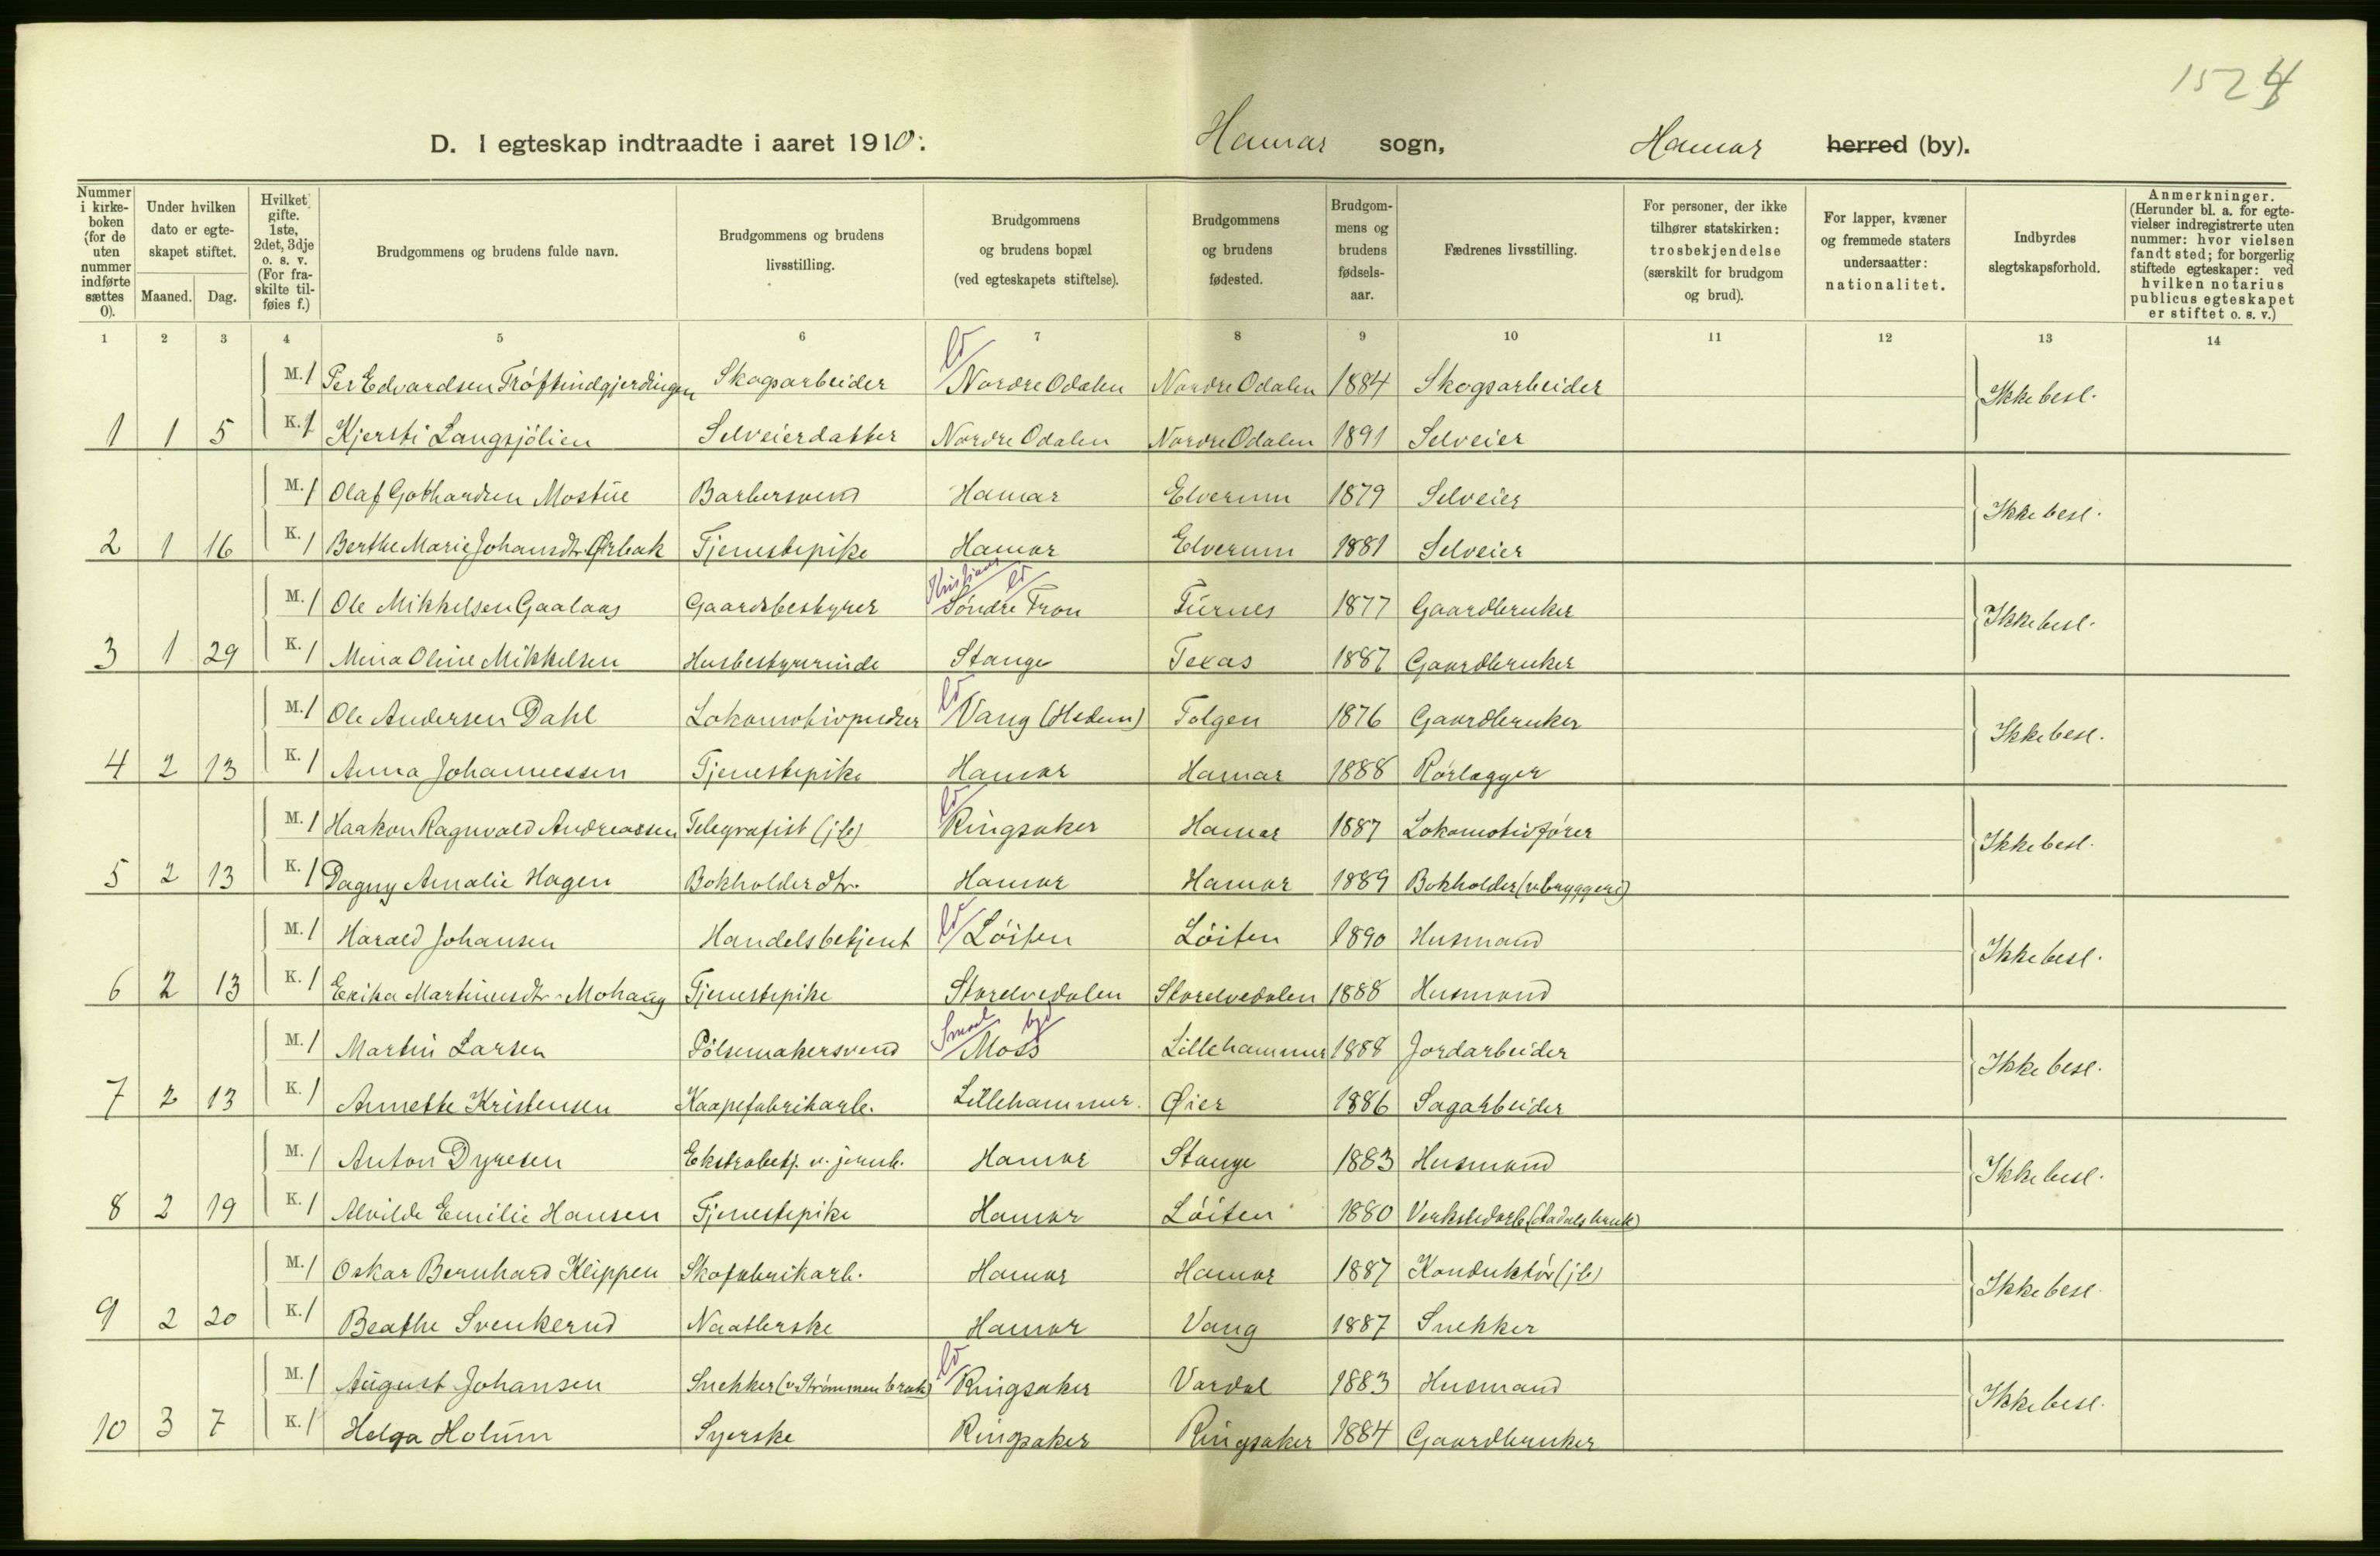 1524
D. I egteskap indtraadte i aaret 1910: Hamar sogn, Hamar herred (by).
Nummer i kirkeboken (for de uten nummer indførte sættes 0). Under hvilken dato er egteskapet stiftet. Maaned. Dag. Hvilket gifte. 1ste, 2det, 3dje o. s. v. (For fraskilte tilføies f.) Brudgommens og brudens fulde navn. Brudgommens og brudens livsstilling. Brudgommens og brudens bopæl (ved egteskapets stiftelse). Brudgommens og brudens fødested. Brudgommens og brudens fødselsaar. Fædrenes livsstilling. For personer, der ikke tilhører statskirken: trosbekjendelse (særskilt for brudgom og brud). For lapper, kvæner og fremmede staters undersaatter: nationalitet. Indbyrdes slegtskapsforhold. Anmerkninger. (Herunder bl. a. for egtevielser indregistrerte uten nummer: hvor vielsen fandt sted; for borgerlig stiftede egteskaper: ved hvilken notarius publicus egteskapet er stiftet o. s. v.)
1 2 3 4 5 6 7 8 9 10 11 12 13 14
M. 1 Per Edvardsen Tröftindgjerdingen Skogsarbeider Nordre Odalen Nordre Odalen 1884 Skogsarbeider Ikke besl.
1 1 5 K. 1 Kjersti Langsjölien Selveierdatter Nordre Odalen Nordre Odalen 1891 Selveier
M. 1 Olaf Gothardsen Mostue Barbersvend Hamar Elverum 1879 Selveier Ikke besl.
2 1 16 K. 1 Berthe Marie Johansdtr. Ørbak Tjenestepike Hamar Elverum 1881 Selveier
M. 1 Ole Mikkelsen Gaalaas Gaardsbestyrer Kristians Söndre Fron Furnes 1877 Gaardbruker Ikke besl.
3 1 29 K. 1 Mina Oline Mikkelsen Husbestyrerinde Stange Texas 1887 Gaardbruker
M. 1 Ole Andersen Dahl Lokomotivpudser Vang (Hedem) Tolgen 1876 Gaardbruker Ikke besl.
4 2 13 K. 1 Anna Johannessen Tjenestepike Hamar Hamar 1888 Rörlægger
M. 1 Haakon Ragnvald Andreassen Telegrafist (jb) Ringsaker Hamar 1887 Lokomotivförer Ikke besl.
5 2 13 K. 1 Dagny Amalie Hagen Bokholderdtr. Hamar Hamar 1889 Bokholder (v bryggeri)
M. 1 Harald Johansen Handelsbetjent Löiten Löiten 1890 Husmand Ikke besl.
6 2 13 K. 1 Erika Martinusdtr. Mohaug Tjenestepike Storelvedalen Storelvedalen 1888 Husmand
M. 1 Martin Larsen Pölsemakersvend Smaal. by Moss Lillehammer 1888 Jordarbeider Ikke besl.
7 2 13 K. 1 Annette Kristensen Kaapefabrikarb. Lillehammer. Øier 1886 Sagarbeider
M. 1 Anton Dyresen Ekstrabetj. v. jernb. Hamar Stange 1883 Husmand Ikke besl.
8 2 19 K. 1 Alvilde Emilie Hansen Tjenestepike Hamar Löiten 1880 Verkstedarb (Aadalsbruk)
M. 1 Oskar Bernhard Klippen Skofabrikarb. Hamar Hamar 1887 Konduktör (jb) Ikke besl.
9 2 20 K. 1 Beathe Svenkerud Naatlerske Hamar Vang 1887 Snekker
M. 1 August Johansen Snekker (v Strömmen bruk) Ringsaker Vardal 1883 Husmand Ikke besl.
10 3 7 K. 1 Helga Holum Syerske Ringsaker Ringsaker 1884 Gaardbruker